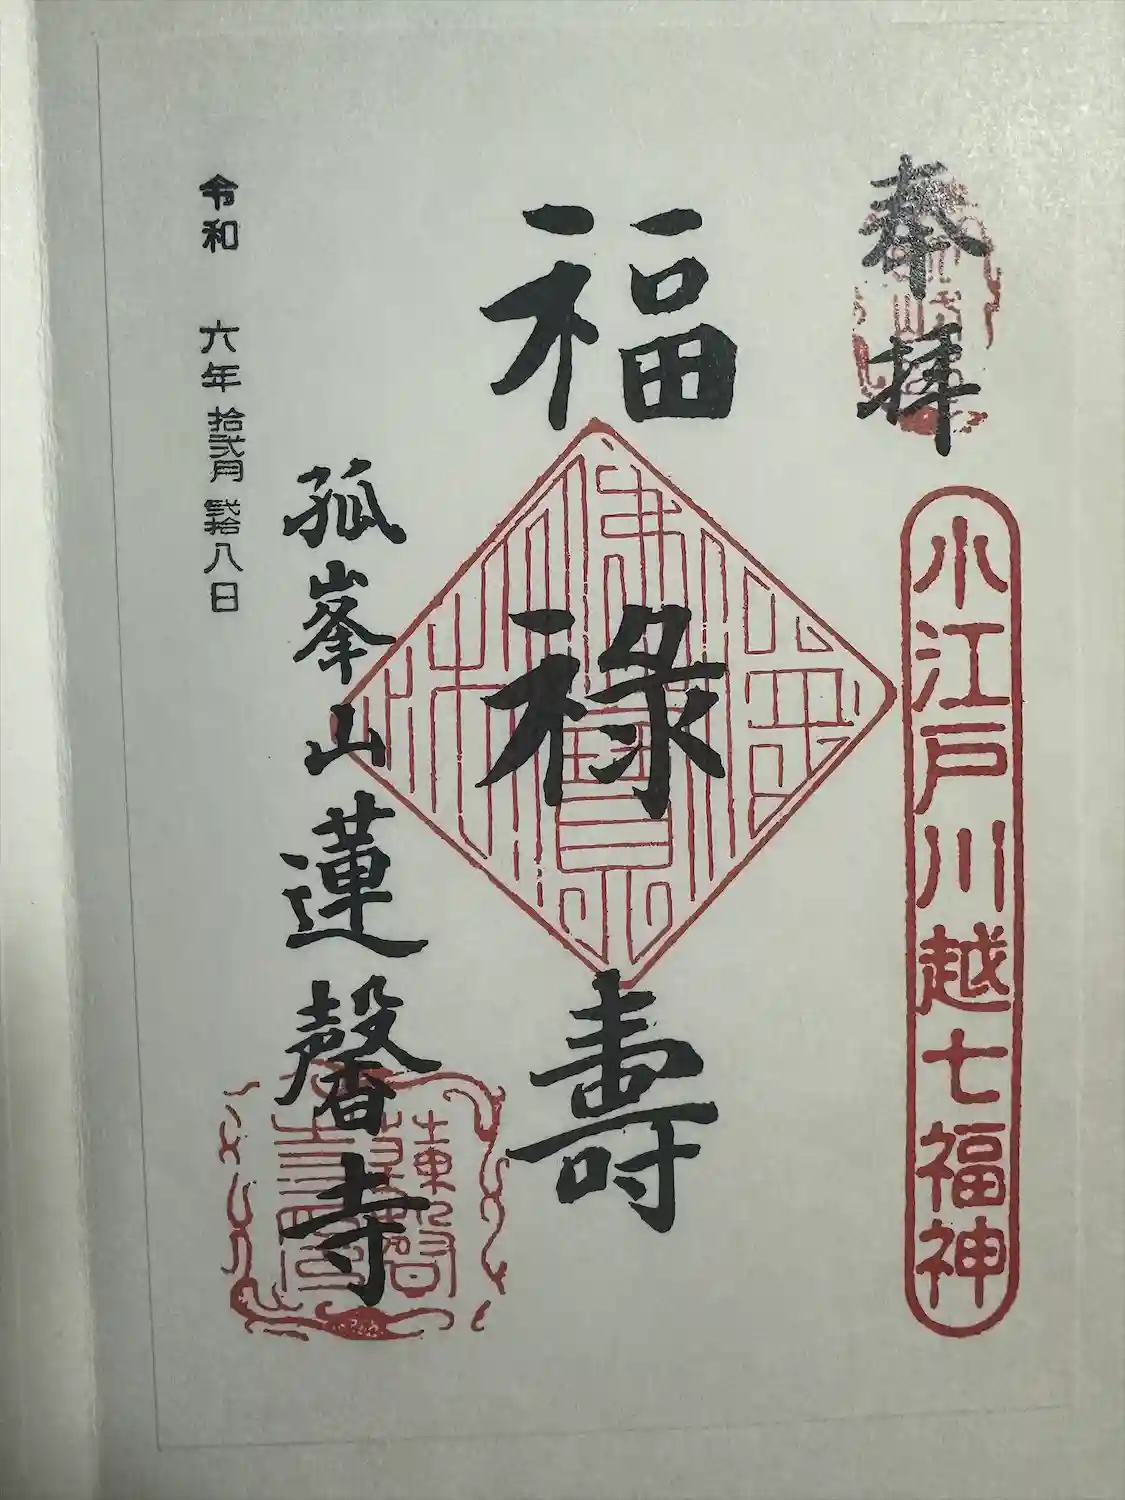 奉拝
小江戸川越七福神
福禄寿
孤峯山蓮馨寺
令和 六年 拾弐月 弐拾八日